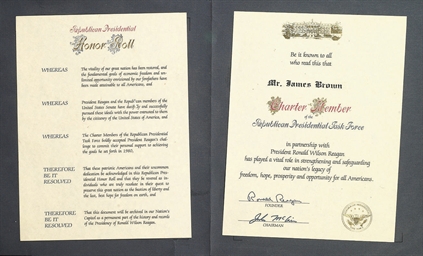 Republican Presidential
Honor Roll
WHEREAS
The vitality of our great nation has been restored, and
the fundamental goals of economic freedom and un-
limited opportunity envisioned by our forefathers have
been made attainable to all Americans, and
WHEREAS
President Reagan and the Republican members of the
United States Senate have and successfully
pursued these ideals with the power entrusted to them
by the citizenry of the United States of America, and
WHEREAS
The Charter Members of the Republican Presidential
Task Force boldly accepted President Reagan's chal-
lenge to commit their personal support to achieving
the goals he set forth in 1980,
THEREFORE
BE IT
RESOLVED
That these patriotic Americans and their uncommon
dedication be acknowledged in this Republican Presi-
dential Honor Roll and that they be revered as in-
dividuals who are truly resolute in their quest to
preserve this great nation as the bastion of liberty and
the last, best hope for freedom on earth, and
THEREFORE
BE IT
RESOLVED
That this document will be archived in our Nation's
Capitol as a permanent part of the history and records
of the Presidency of Ronald Wilson Reagan.
Be it known to all
who read this that
Mr. James Brown
Charter Member
of the
Republican Presidential Task Force
in partnership with
President Ronald Wilson Reagan
has played a vital role in strengthening and safeguarding
our nation's legacy of
freedom, hope, prosperity and opportunity for all Americans.
Ronald Reagan
FOUNDER
CHAIRMAN